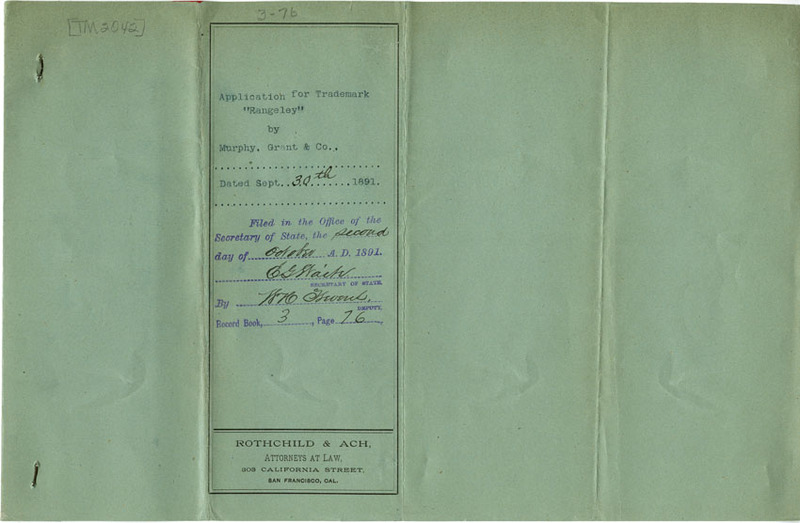 [TM2042]
3-76
Application for Trademark
"Rangeley"
by
Murphy, Grant & Co.,
Dated Sept. 30th 1891.
Filed in the Office of the
Secretary of State, the second
day of October A. D. 1891.
E G Waite
SECRETARY OF STATE.
By W H
DEPUTY.
Record Book, 3, Page 76,
ROTHCHILD & ACH,
ATTORNEYS AT LAW,
303 CALIFORNIA STREET,
SAN FRANCISCO, CAL.